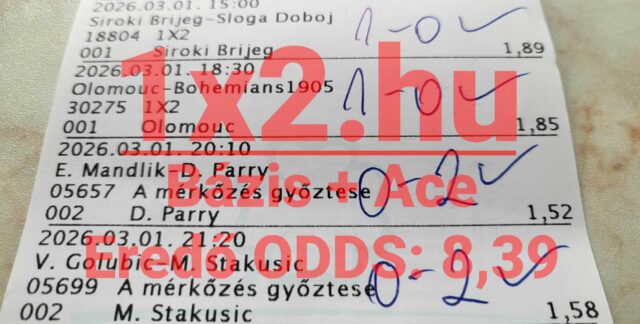 2026.03.01. 15:00
Siroki Brijeg-Sloga Doboj
18804 1X2
001 Siroki Brijeg 1,89
1-0 ✓
2026.03.01. 18:30
Olomouc-Bohemians1905
30275 1X2
001 Olomouc 1,85
1-0 ✓
2026.03.01. 20:10
E. Mandlik-D. Parry
05657 A mérkőzés győztese
002 D. Parry 1,52
0-2 ✓
2026.03.01. 21:20
V. Golubic-M. Stakusic
05699 A mérkőzés győztese
002 M. Stakusic 1,58
0-2 ✓
1x2.hu
Bázis + Ace
Eredő ODDS: 8,39